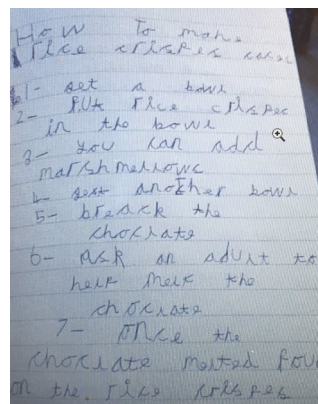 How To make
rice crispes cakes
1- get a bowl
2- put rice crispes
in the bowl
3- you can add
marshmellowc
4- get another bowl
5- breack the
choclate
6- Ask an adult to
help melt the
choclate
7- Once the
choclate melted pou
on the rice crispes